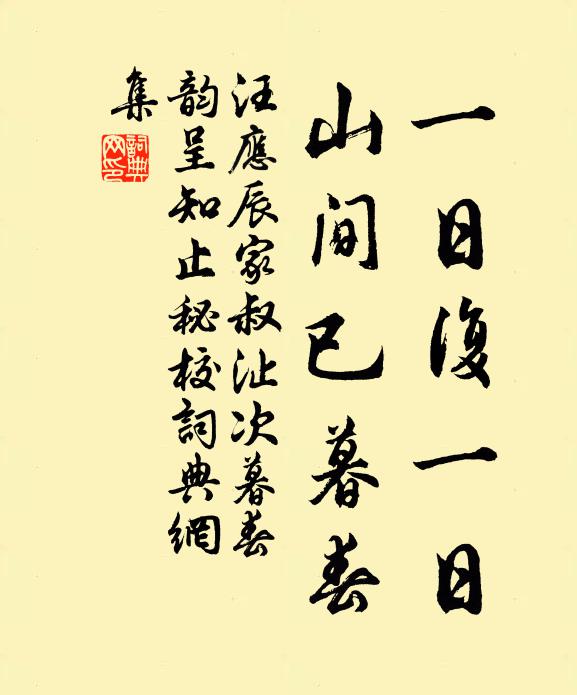 一日復一日
山间已暮春
汪應辰家叔沚次暮春
韵呈知止秘校詞典網
集
詞典
网印